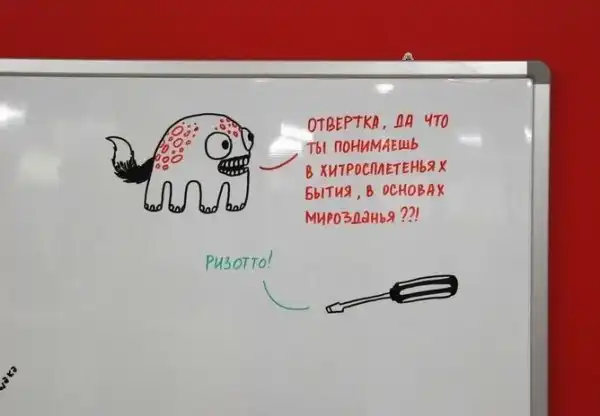 ОТВЕРТКА, ДА ЧТО
ТЫ ПОНИМАЕШЬ
В ХИТРОСПЛЕТЕНЬЯХ
БЫТИЯ, В ОСНОВАХ
МИРОЗДАНЬЯ ??!
РИЗОТТО!